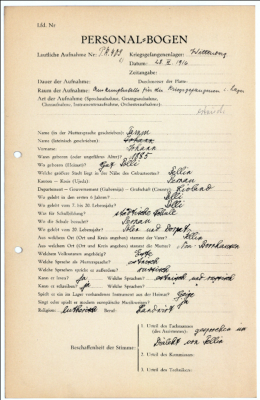 Lfd. Nr.
PERSONAL-BOGEN
Lautliche Aufnahme Nr.: PK 499 Kriegsgefangenenlager:
Datum: 28. II 1916
Dauer der Aufnahme: Zeitangabe:
Durchmesser der Platte:
Raum der Aufnahme: für die Kriegsgefangenen i. Lager
Art der Aufnahme (Sprechaufnahme, Gesangsaufnahme,
Choraufnahme, Instrumentenaufnahme, Orchesteraufnahme):
estnisch
Name (in der Muttersprache geschrieben):
Name (lateinisch geschrieben): Johann
Vorname: Johann
Wann geboren (oder ungefähres Alter)? 1885
Wo geboren (Heimat)? Gut Selli
Welche größere Stadt liegt in der Nähe des Geburtsortes? Fellin
Kanton – Kreis (Ujedz): Pernau
Departement – Gouvernement (Gubernija) – Grafschaft (County): Livland
Wo gelebt in den ersten 6 Jahren? Selli
Wo gelebt vom 7. bis 20. Lebensjahr? Selli
Was für Schulbildung? städtische Schule
Wo die Schule besucht? Pernau
Wo gelebt vom 20. Lebensjahr? und Dorpat
Aus welchem Ort (Ort und Kreis angeben) stammt der Vater? Selli
Aus welchem Ort (Ort und Kreis angeben) stammt die Mutter?
Welchem Volksstamm angehörig? Este
Welche Sprache als Muttersprache? estnisch
Welche Sprachen spricht er außerdem? russisch
Kann er lesen? Ja Welche Sprachen? estnisch und russisch
Kann er schreiben? Ja Welche Sprachen?
Spielt er ein im Lager vorhandenes Instrument aus der Heimat? Geige
Singt oder spielt er modern europäische Musikweisen? Ja
Religion: lutherisch Beruf: Landwirt
Beschaffenheit der Stimme:
1. Urteil des Fachmannes
(des Assistenten): gesprochen im
Dialekt von Fellin
2. Urteil des Kommissars:
3. Urteil des Technikers: